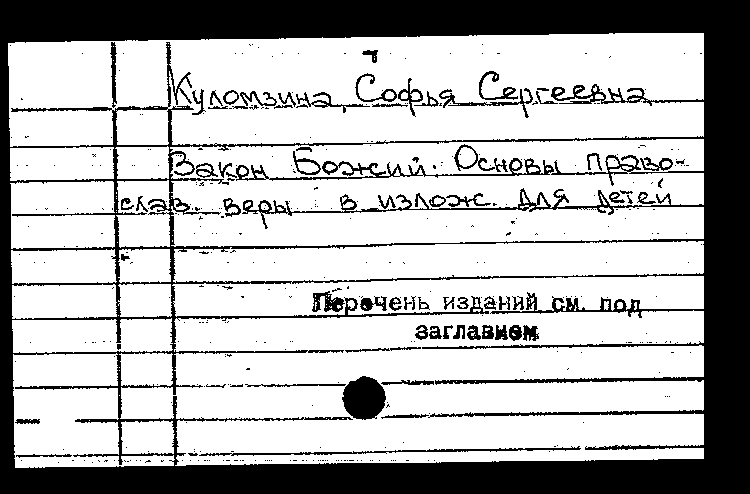 Куломзина, Софья Сергеевна
Закон Божий: Основы право-
слав. веры в излож. для детей
Перечень изданий см. под
заглавием